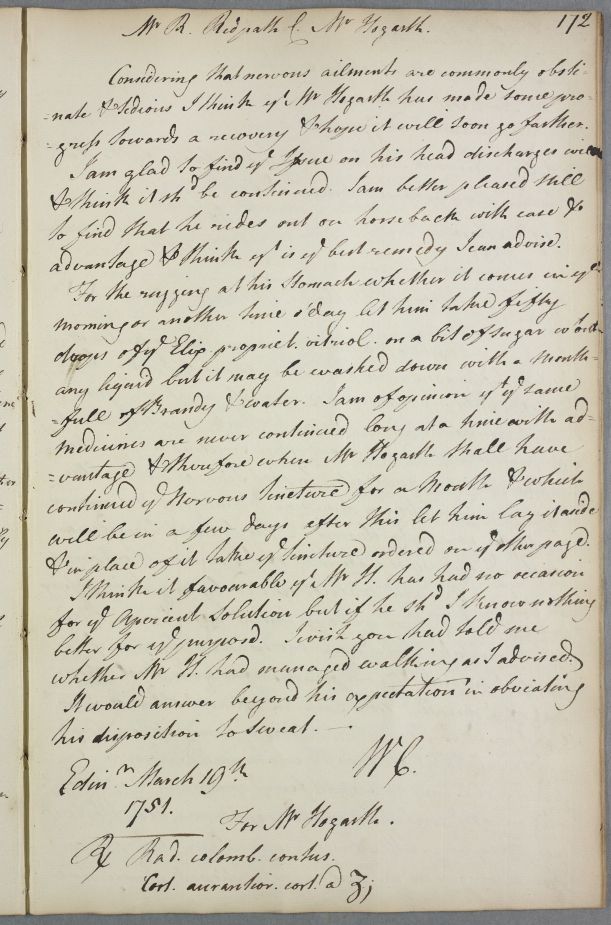 Mr R. Ridpath C. Mr Hogarth. 172
Considering that nervous ailments are commonly obsti-
=nate & tedious I think yt Mr Hogarth has made some pro-
=gress towards a recovery & hope it will soon go farther.
I am glad to find ye Issue on his head discharges well
& think it shd be continued. I am better pleased still
to find that he rides out on horseback with ease &
advantage & think yt is ye best remedy I can advise.
For the rugging at his stomach whether it comes in ye
morning or another time o'day let him take fifty
drops of ye Elix. propriet. vitriol. on a bit of sugar wtout
any liquid but it may be washed down with a mouth-
=full of Brandy & water. I am of opinion yt ye same
medicines are never continued long at a time with ad-
=vantage & therefore when Mr Hogarth shall have
continued ye Nervous tincture for a Month & which
will be in a few days after this let him lay it aside
& in place of it take ye tincture ordered on ye other page.
I think it favourable yt Mr H. has had no occasion
for ye Aperient Solution but if he shd I know nothing
better for ye purpose. I wish you had told me
whether Mr H. had managed walking as I advised.
It would answer beyond his expectation in obviating
his disposition to Sweat.
W C.
Edinr March 19th
1751.
For Mr Hogarth.
℞ Rad. colomb. contus.
Cort. aurantior. cort. a ʒj